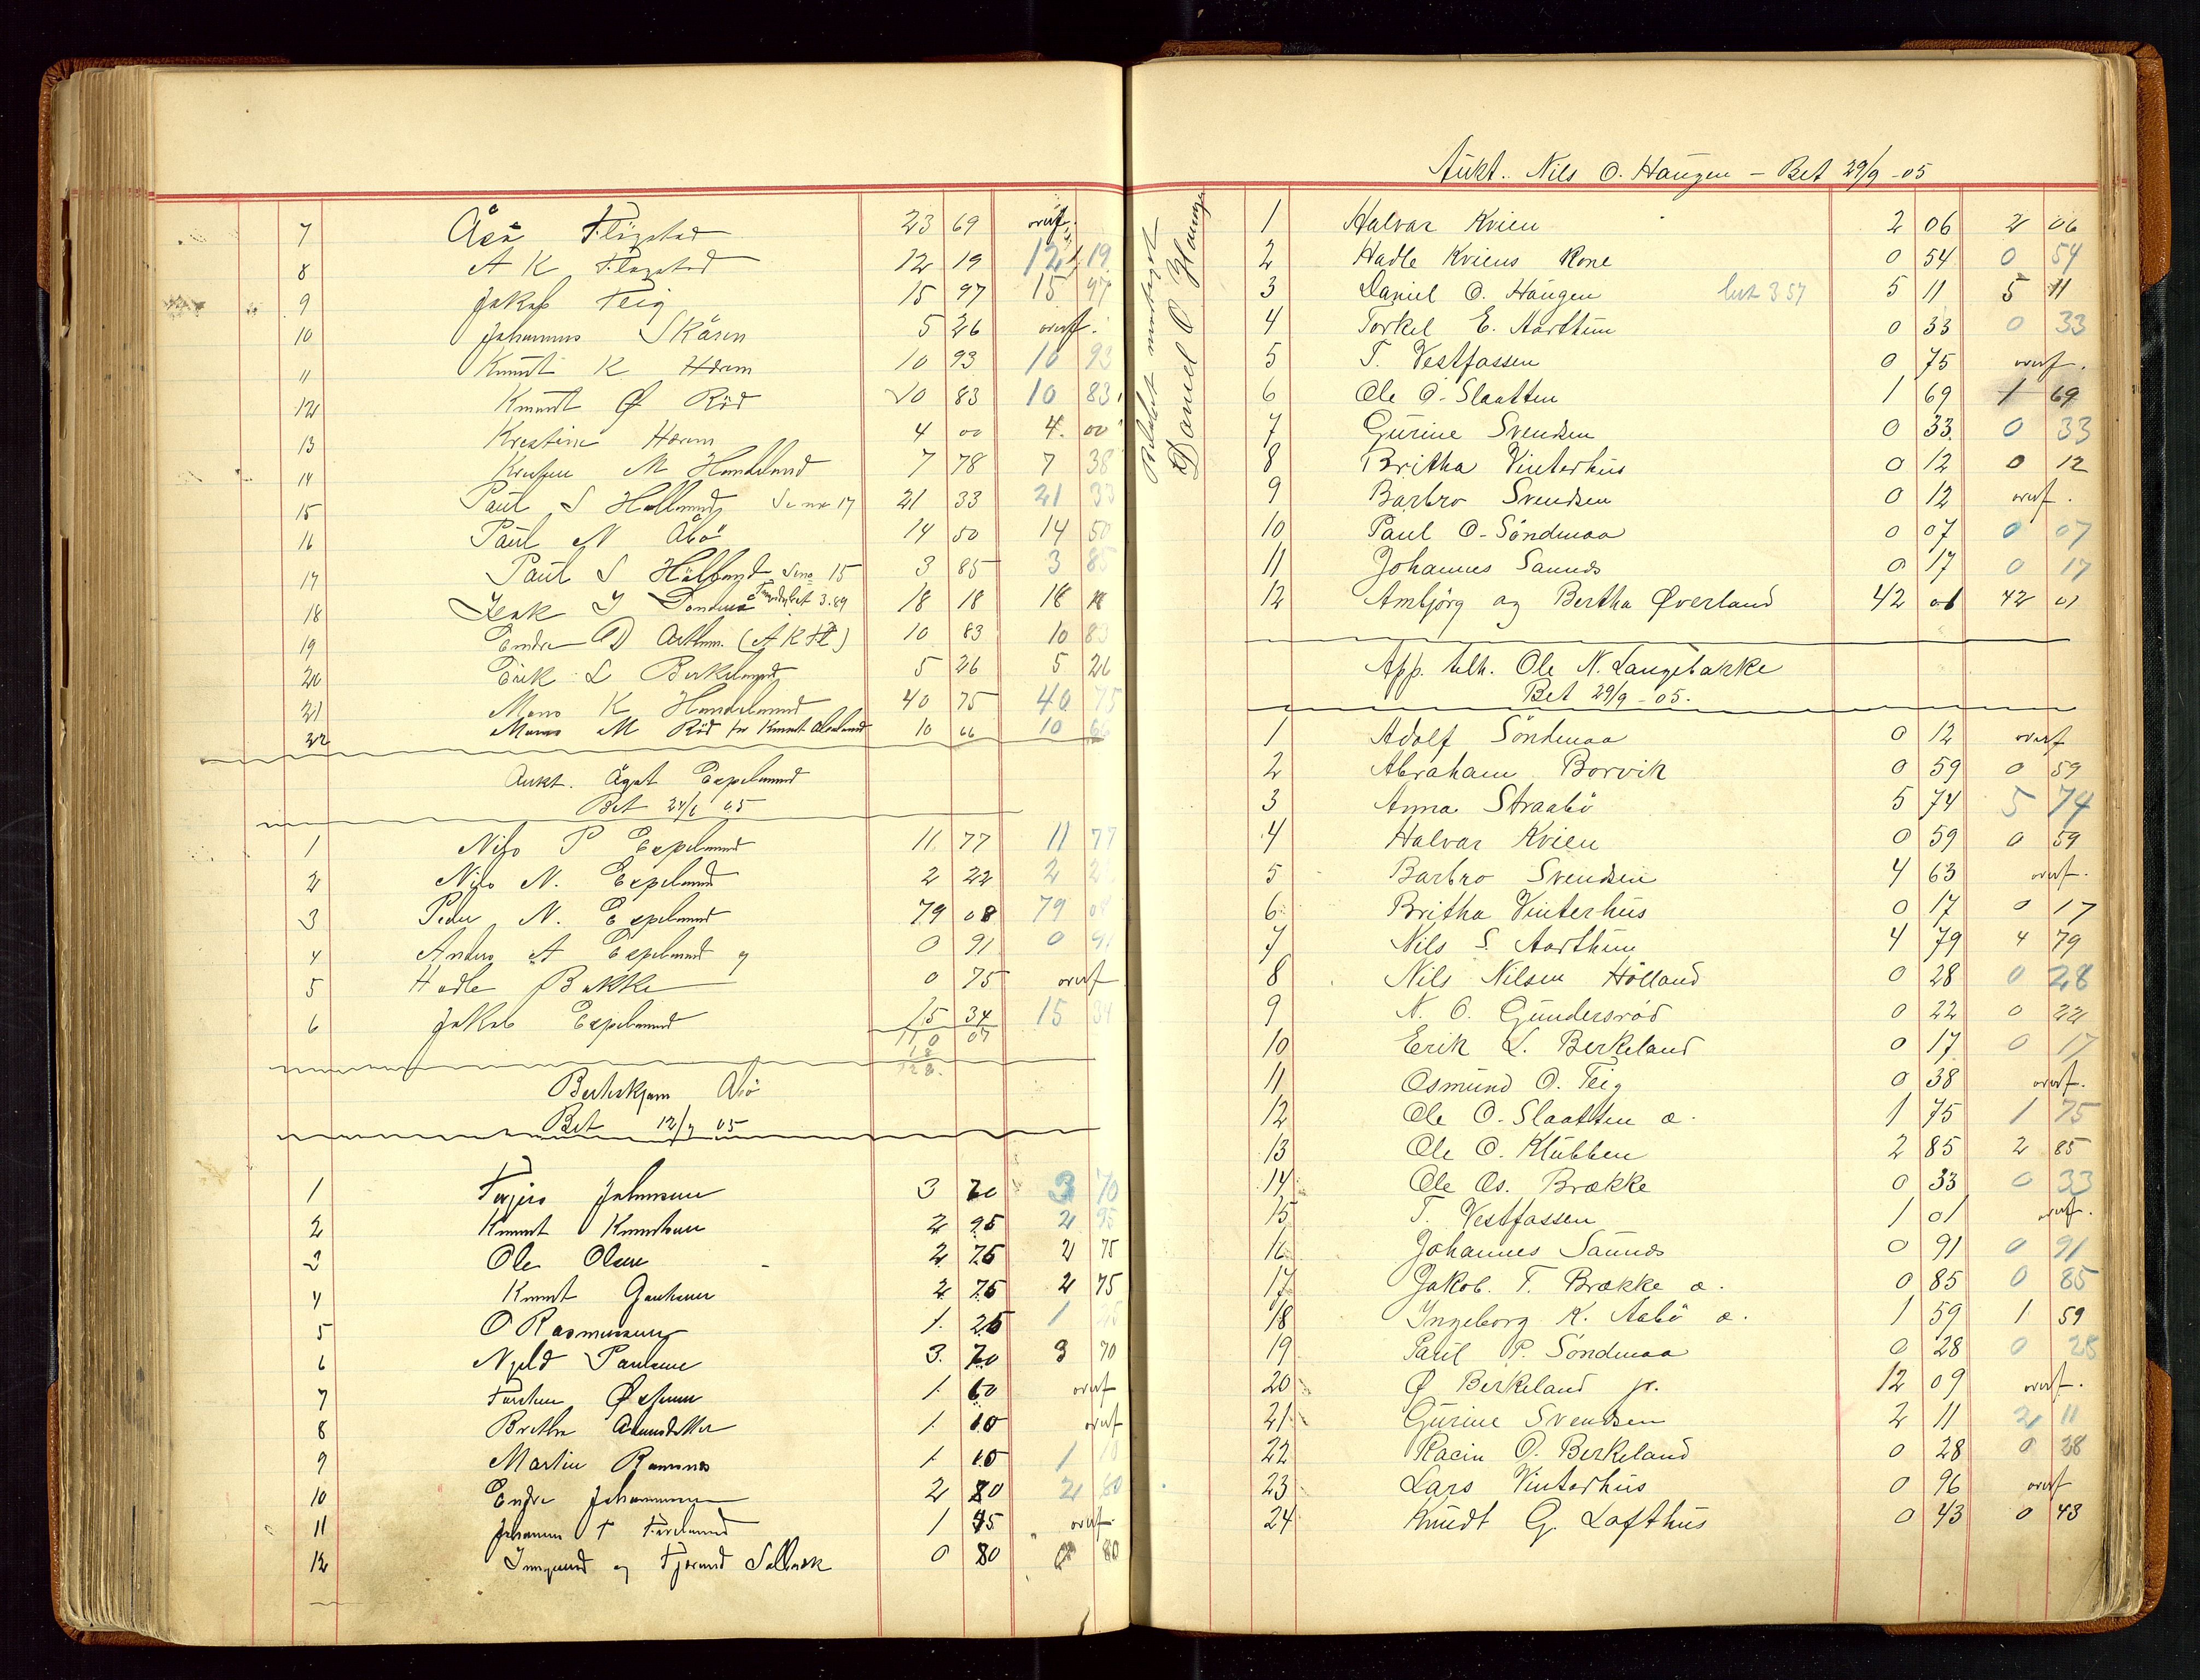 7 Åsa Fligstad 23 69 overf.
8 A K Fligstad 12 19 12 19
9 Jakob Teig 15 97 15 97
10 Johannes Skåren 5 26 overf.
11 Knudt K Hærm 10 93 10 93
12 Knudt Ø Röd 10 83 10 83
13 Krestine Hærm 4 00 4. 00
14 M Handeland 7 78 7 38
15 Paul S Hølland Se no 17 21 33 21 33
16 Paul N Åbö 14 50 14 50
17 Paul S Hølland Se no 15 3 85 3 85
18 I Söndmå 3.89 18 18 18 18
19 Endre D Arthum. (A K Fl) 10 83 10 83
20 Erik L Berkeland 5 26 5 26
21 Mons K Handeland 40 75 40 75
22 Mons M Röd for Knut 10 66 10 66
Aukt. Espeland
Bet 24/6 05
1 Nils P Espeland 11 77 11 77
2 Nils N. Espeland 2 22 2 2
3 Peder N. Espeland 79 08 79 08
4 Anders A Espeland og 0 91 0 91
5 Hadle Bakke 0 75 overf
6 Jakob Espeland 15 34 15 34
110 07
18
128.
Åbö
Bet 12/9 05
1 Johnsen 3 70 3 70
2 Knudt Knudsen 2 95 2 95
3 Ole Olsen 2 75 2 75
4 Knudt 2 75 2 75
5 O Rasmussen 1. 25 1 25
6 Paulsen 3. 70 3 70
7 1. 60 overf
8 Britha 1. 10 overf
9 Martin 1. 10 1 10
10 Endre Johannesen 2 80 2 80
11 Johannes T 1 45 overf.
12 og 0 80 0 80
Aukt. Nils O. Haugen – Bet 29/9 -05
Beløbet modtaget
Daniel O Haugen
1 Halvar Kvien 2 06 2 06
2 Hadle Kviens Kone 0 54 0 54
3 Daniel O. Haugen bet 3 57 5 11 5 11
4 Torkel E. Aarthun 0 33 0 33
5 T. Vestfossen 0 75 overf.
6 Ole O. Slaatten 1 69 1 69
7 Gurine Svendsen 0 33. 0 33
8 Britha Vinterhus 0 12 0 12
9 Barbro Svendsen 0 12 overf.
10 Paul O. Söndmaa 0 07 0 07
11 Johannes Saunds 0 17 0 17
12 Ambjörg og Bertha Øverland 42 01 42 01
App. tilh. Ole N. Langebakke
Bet 29/9 -05.
1 Adolf Söndmaa 0 12 overf
2 Abraham Borvik 0 59 0 59
3 Anna Straabö 5 74 5 74
4 Halvar Kvien 0 59 0 59
5 Barbro Svendsen 4 63 overf.
6 Britha Vinterhus 0 17 0 17
7 Nils S. Aarthun 4 79 4 79
8 Nils Nilsen Hölland 0 28 0 28
9 N. O. Gundersröd 0 22 0 22
10 Erik L. Berkeland 0 17 0 17
11 Osmund O. Teig 0 38 overf.
12 Ole O. Slaatten a. 1 75 1 75
13 Ole O. Klubben 2 85 2 85
14 Ole Os. Brække 0 33 0 33
15 T. Vestfossen 1 01 overf.
16 Johannes Saunds 0 91 0 91
17 Jakob. T. Brække a. 0 85 0 85
18 Ingeborg K. Aabö a. 1 59 1 59
19 Paul P. Söndmaa 0 28 0 28
20 Ø Berkeland jr. 12 09 overf.
21 Gurine Svendsen 2 11 2 11
22 Racin O. Berkeland 0 28 0 28
23 Lars Vinterhus 0 96 overf
24 Knudt G. Lofthus 0 43 0 43